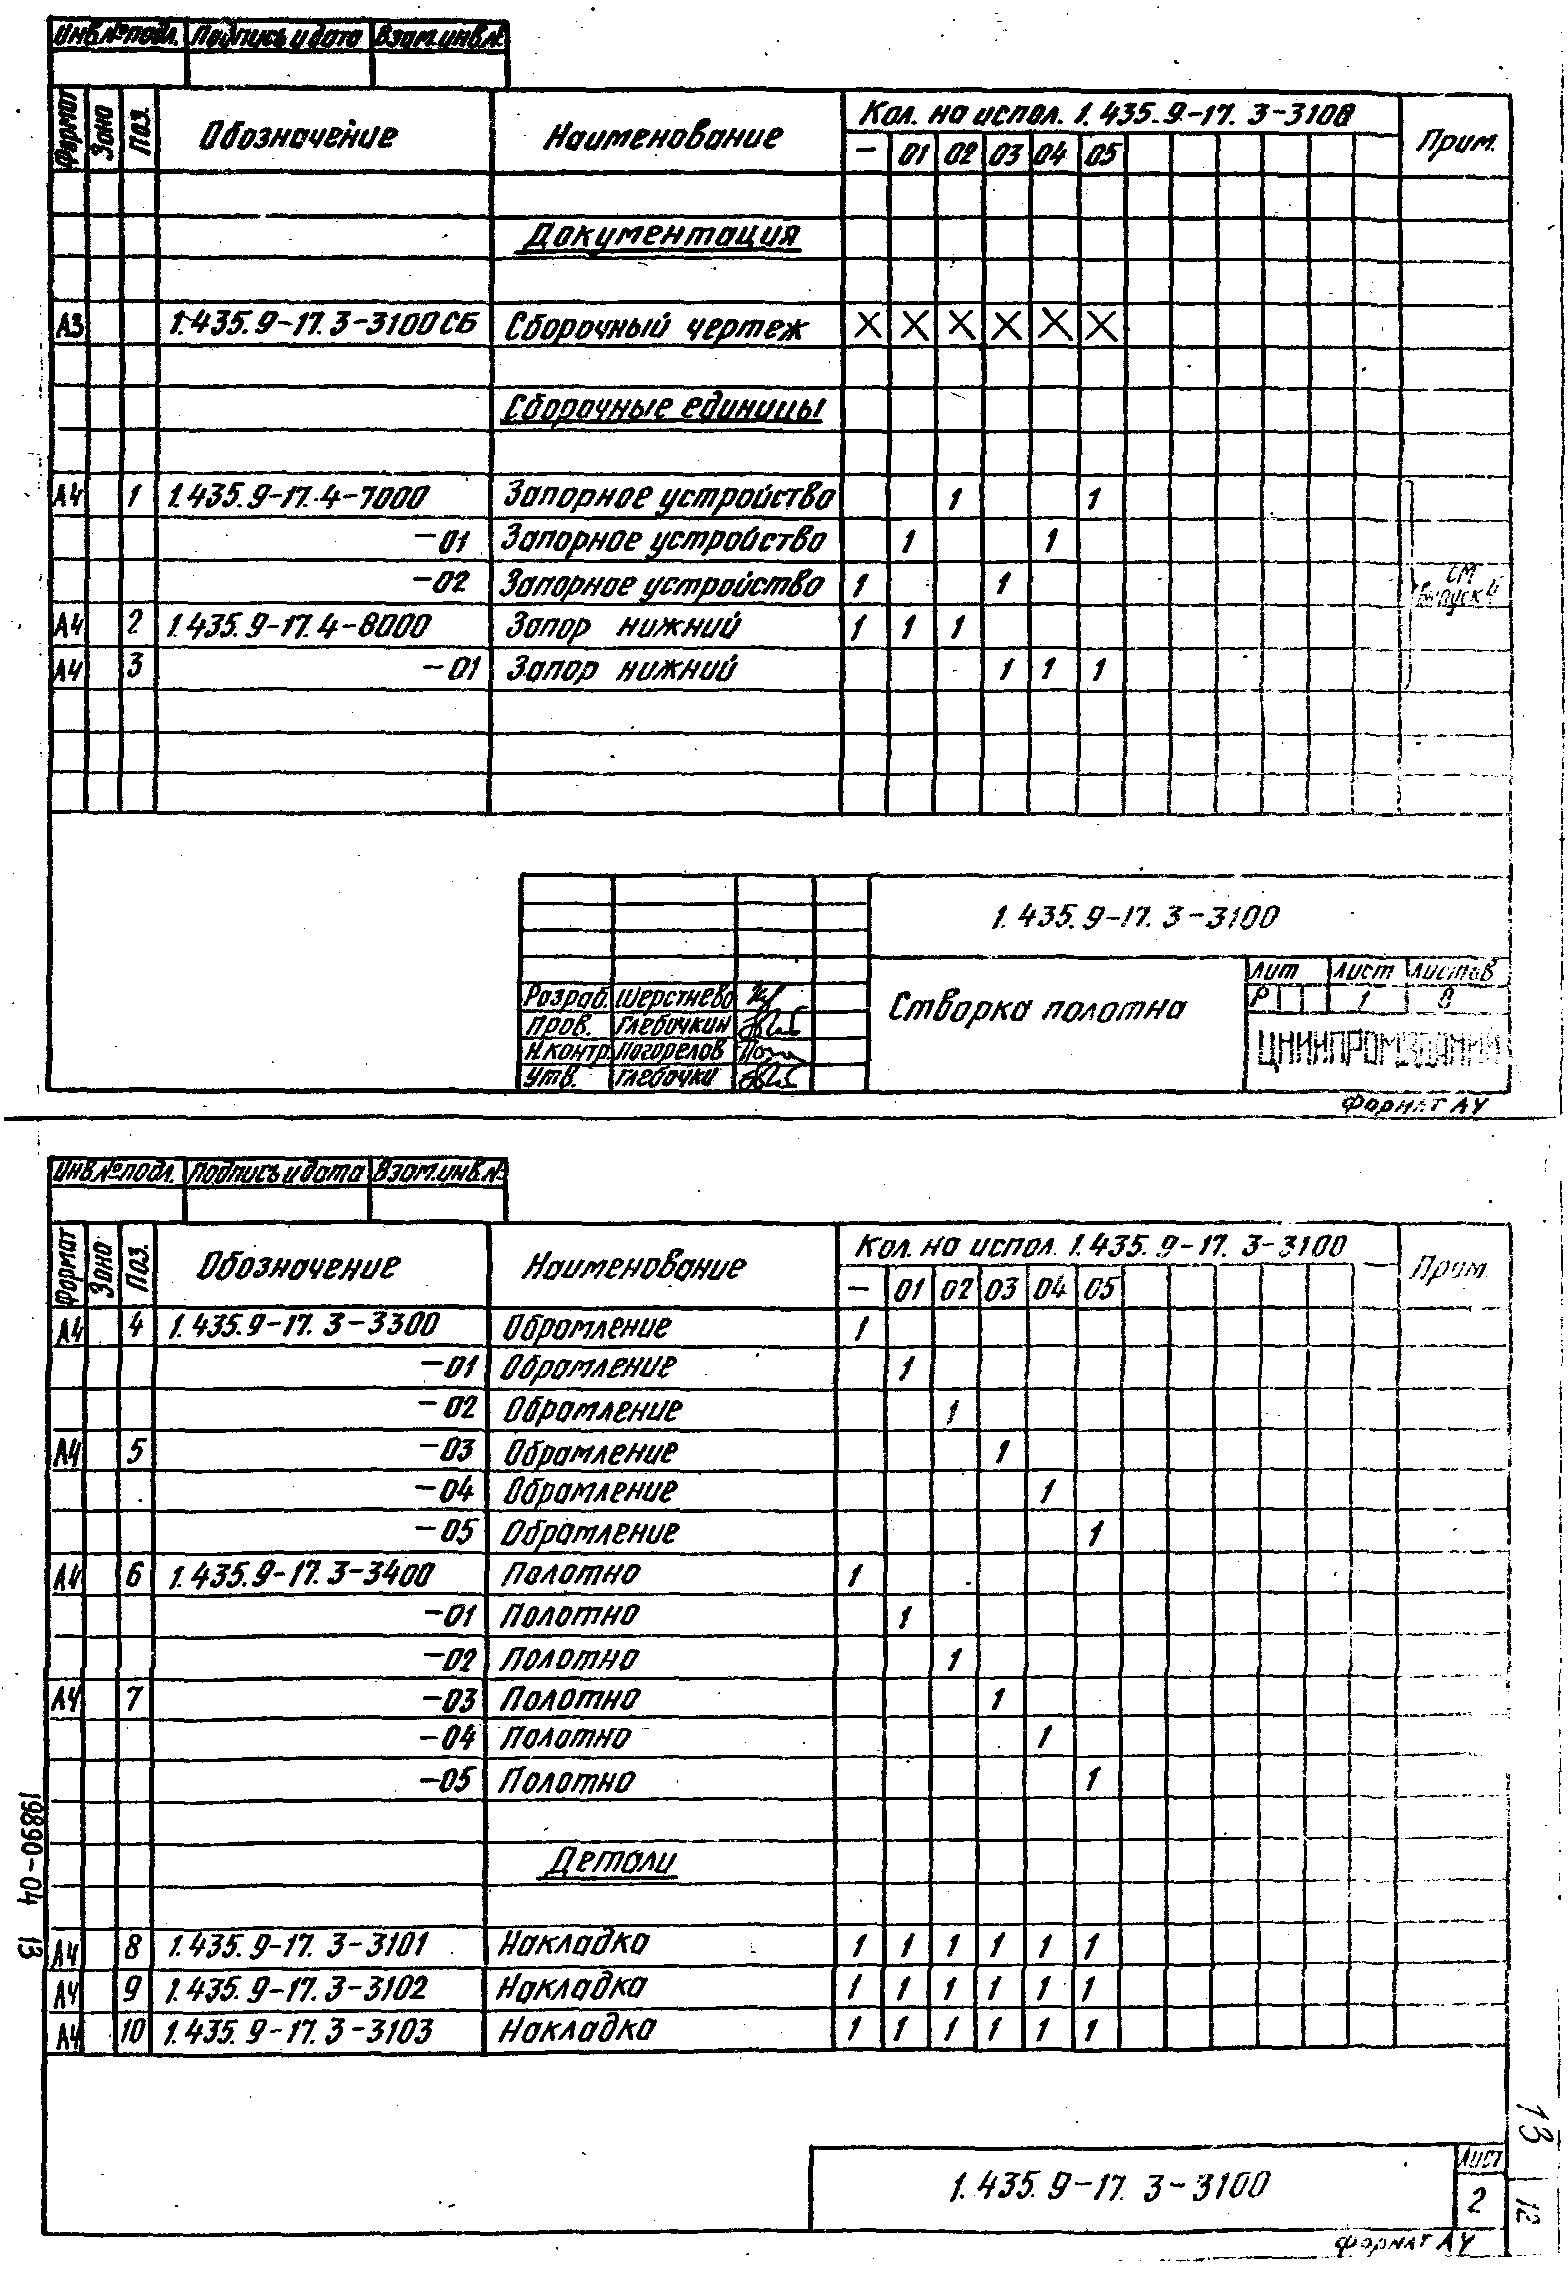 Инв.№подл. Подпись и дата Взам.инв.№
Формат Зона Поз. Обозначение Наименование Кол. на испол. 1.435.9-17. 3-3100 Прим.
— 01 02 03 04 05
Документация
А3 1.435.9-17.3-3100СБ Сборочный чертеж X X X X X X
Сборочные единицы
А4 1 1.435.9-17.4-7000 Запорное устройство 1 1
-01 Запорное устройство 1 1
-02 Запорное устройство 1 1
см выпуск 4
А4 2 1.435.9-17.4-8000 Запор нижний 1 1 1
А4 3 -01 Запор нижний 1 1 1
1.435.9-17. 3-3100
Лит Лист Листов
Разраб. Шерстнева Р 1 8
Створка полотна
Пров. Глебочкин
Н.контр. Погорелов ЦНИИПРОМЗДАНИЙ
Утв. Глебочки
Формат А4
Инв.№подл. Подпись и дата Взам.инв.№
Формат Зона Поз. Обозначение Наименование Кол. на испол. 1.435.9-17. 3-3100 Прим.
— 01 02 03 04 05
А4 4 1.435.9-17. 3-3300 Обрамление 1
-01 Обрамление 1
-02 Обрамление 1
А4 5 -03 Обрамление 1
-04 Обрамление 1
-05 Обрамление 1
А4 6 1.435.9-17. 3-3400 Полотно 1
-01 Полотно 1
-02 Полотно 1
А4 7 -03 Полотно 1
-04 Полотно 1
-05 Полотно 1
Детали
А4 8 1.435.9-17. 3-3101 Накладка 1 1 1 1 1 1
А4 9 1.435.9-17. 3-3102 Накладка 1 1 1 1 1 1
А4 10 1.435.9-17. 3-3103 Накладка 1 1 1 1 1 1
19890-04 13
1.435.9-17. 3-3100
Лист
2
Формат А4
13
12